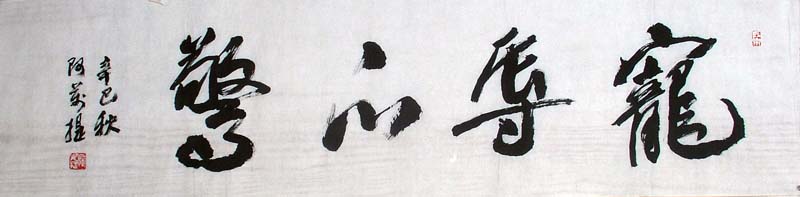 寵辱不驚
辛巳秋
阿萬提